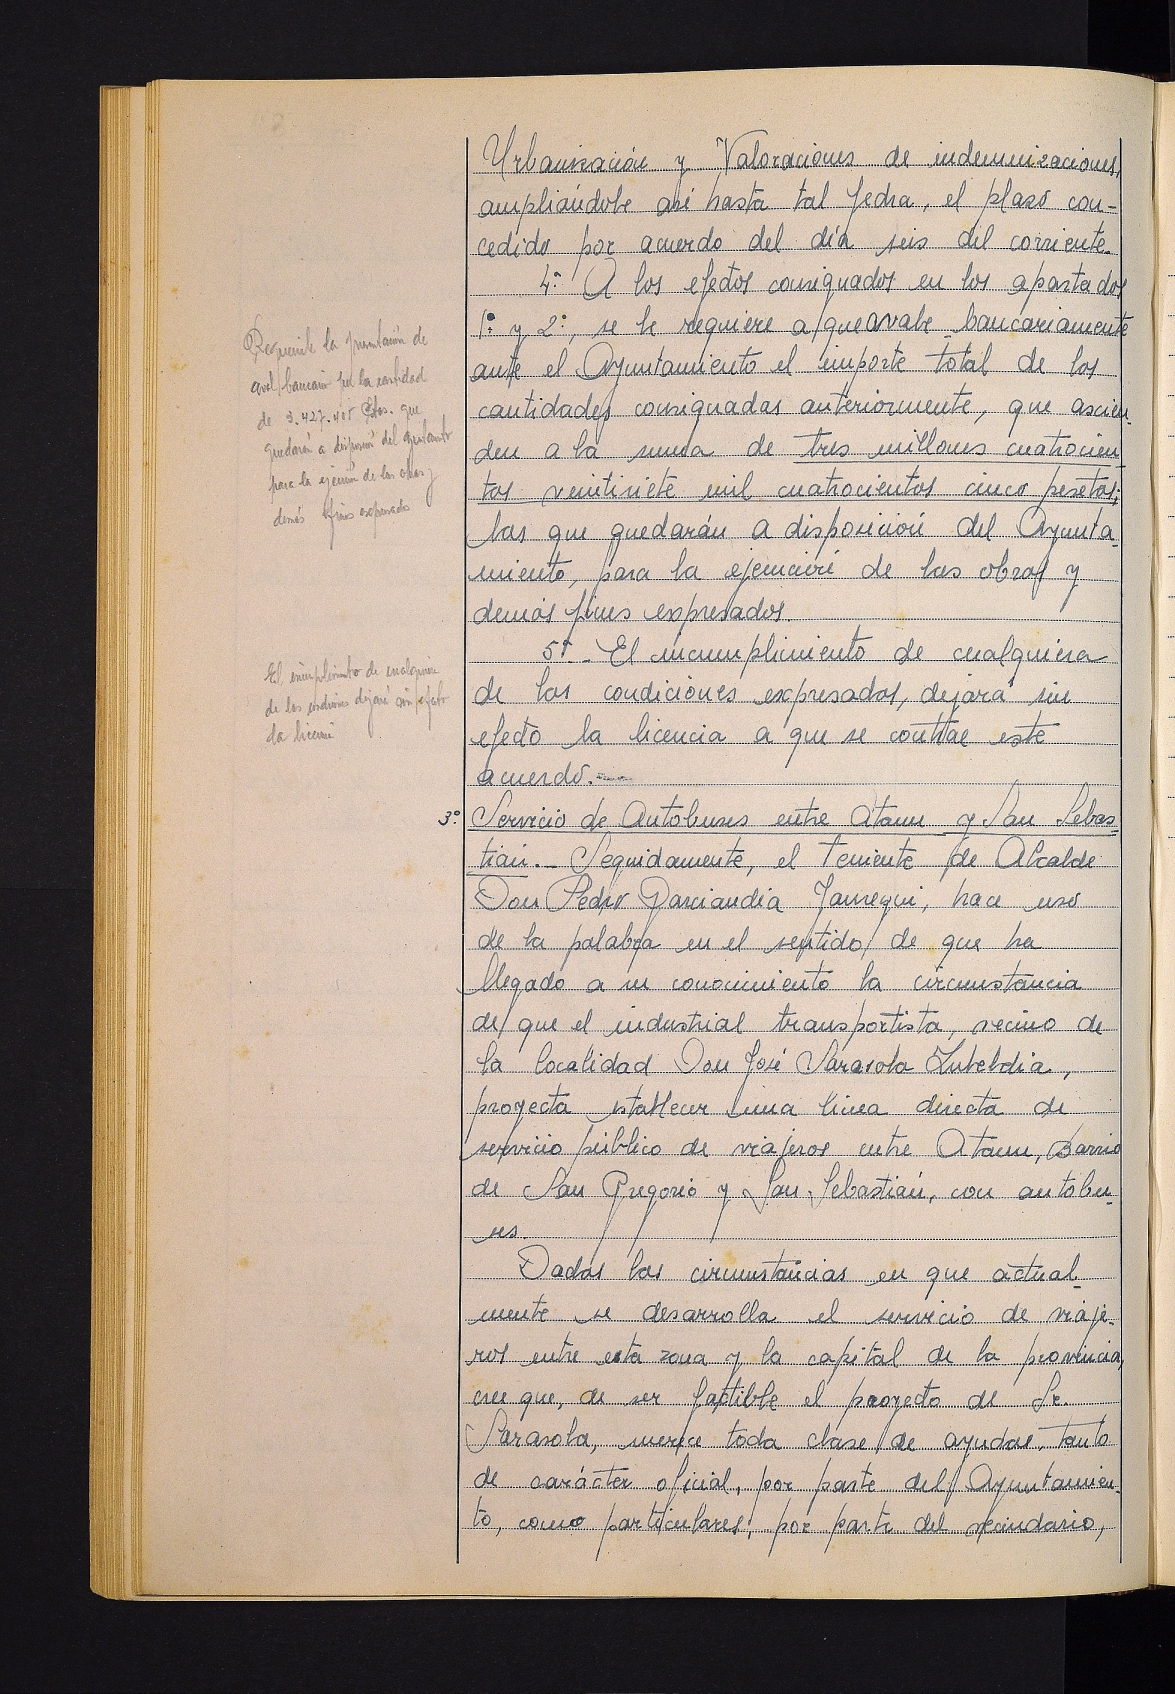 Urbanización y Valoraciones de indemnizaciones,
ampliándole así hasta tal fecha, el plazo con-
cedido por acuerdo del día seis del corriente.
4º A los efectos consignados en los apartados
1º y 2º, se le requiere a que avale bancariamente
ante el Ayuntamiento el importe total de las
cantidades consignadas anteriormente, que ascien-
den a la suma de tres millones cuatrocien
tas veintisiete mil cuatrocientas cinco pesetas;
las que quedarán a disposición del Ayunta-
miento, para la ejecución de las obras y
demás fines expresados.
5º.- El incumplimiento de cualquiera
de las condiciones expresadas, dejará sin
efecto la licencia a que se contrae este
acuerdo.
Requerirle la presentación de
aval bancario por la cantidad
de 3.427.405 Ptas. que
quedarán a disposición del Ayuntamto
para la ejecución de las obras y
demás fines expresados
El incumplimiento de cualquiera
de las condiciones dejará sin efecto
la licencia
3º. Servicio de Autobuses entre Ataun y San Sebas-
tián.- Seguidamente, el Teniente de Alcalde
Don Pedro Garciandia Jauregui, hace uso
de la palabra en el sentido de que ha
llegado a su conocimiento la circunstancia
de que el industrial transportista, vecino de
la localidad Don José Sarasola Zubeldia,
proyecta establecer una linea directa de
servicio público de viajeros entre Ataun, Barrio
de San Gregorio y San Sebastián, con autobu-
ses.
Dadas las circunstancias en que actual-
mente se desarrolla el servicio de viaje-
ros entre esta zona y la capital de la provincia,
cree que, de ser factible el proyecto de Sr.
Sarasola, merece toda clase de ayudas, tanto
de carácter oficial, por parte del Ayuntamien-
to, como particulares, por parte del vecindario,